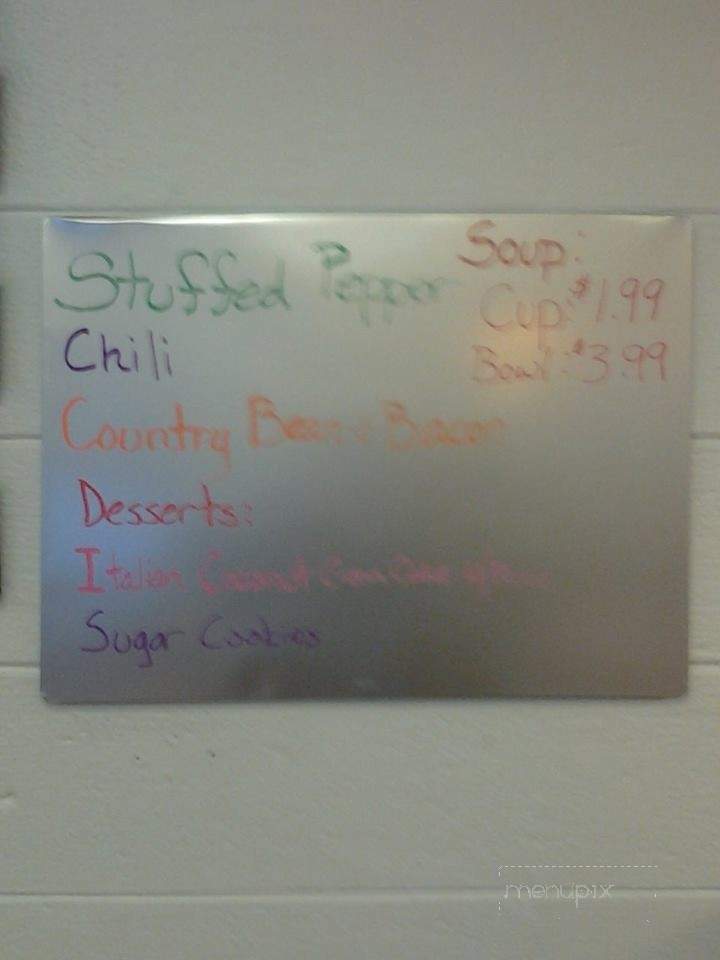 Stuffed Pepper
Chili
Country Bean & Bacon
Soup:
Cup: $1.99
Bowl: $3.99
Desserts:
Italian Coconut Cream Cake
Sugar Cookies
menupix